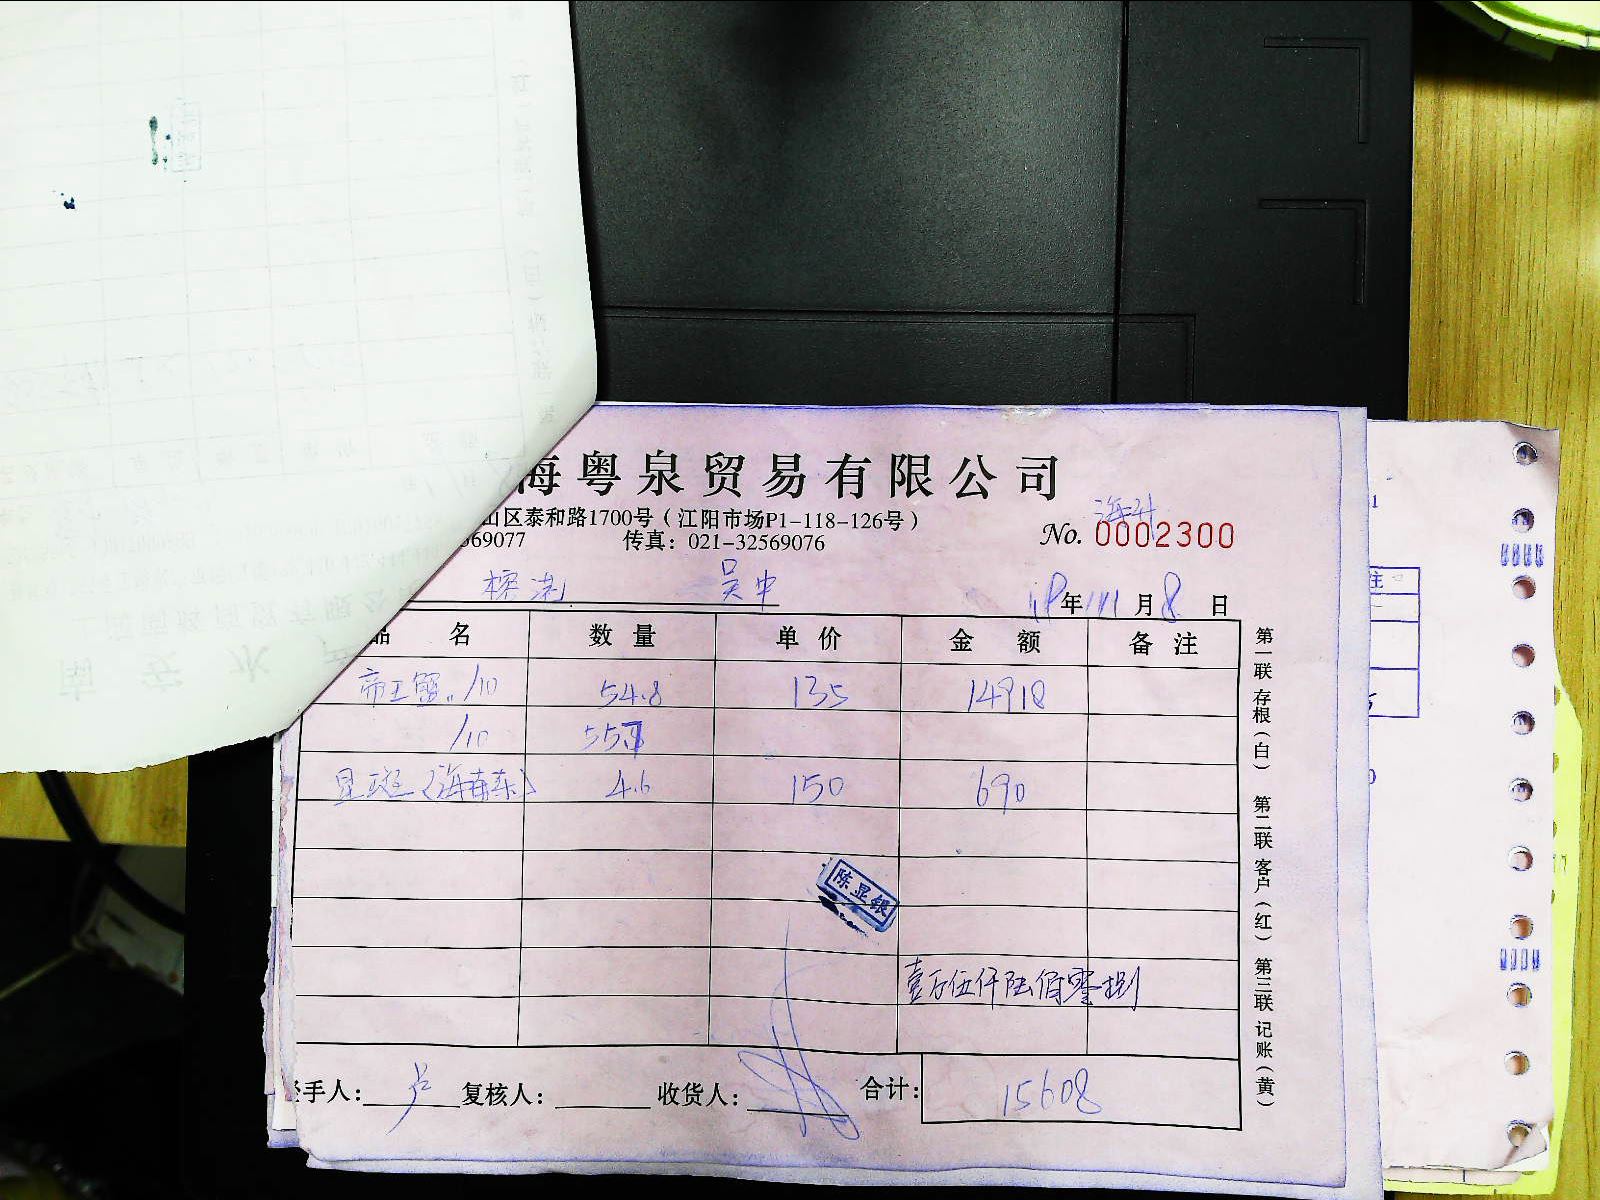 海粤泉贸易有限公司
山区泰和路1700号（江阳市场P1-118-126号）
569077 传真：021-32569076
海升
No. 0002300
吴中
18年11月8日
品名 数量 单价 金额 备注
帝王蟹 /10 54.8 135 14918
/10 55.7
星斑（海南东） 4.6 150 690
陈显银
壹万伍仟陆佰零捌
经手人： 卢 复核人： 收货人： 合计： 15608
第一联 存根（白） 第二联 客户（红） 第三联 记账（黄）